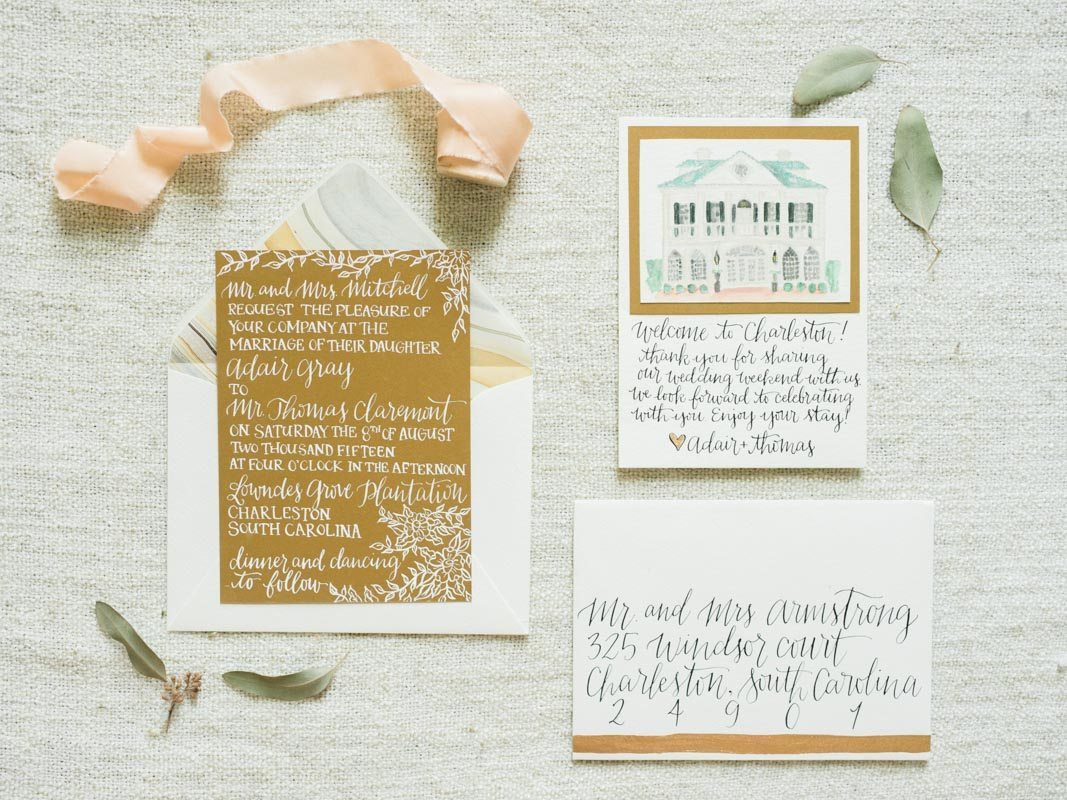 Mr. and Mrs. Mitchell
REQUEST THE PLEASURE OF
YOUR COMPANY AT THE
MARRIAGE OF THEIR DAUGHTER
Adair Gray
TO
Mr. Thomas Claremont
ON SATURDAY THE 8TH OF AUGUST
TWO THOUSAND FIFTEEN
AT FOUR O'CLOCK IN THE AFTERNOON
Lowndes Grove Plantation
CHARLESTON
SOUTH CAROLINA
dinner and dancing
to follow
Welcome to Charleston!
thank you for sharing
our wedding weekend with us.
We look forward to celebrating
with you. Enjoy your stay!
Adair + Thomas
Mr. and Mrs Armstrong
325 Windsor Court
Charleston, South Carolina
2 4 9 0 1